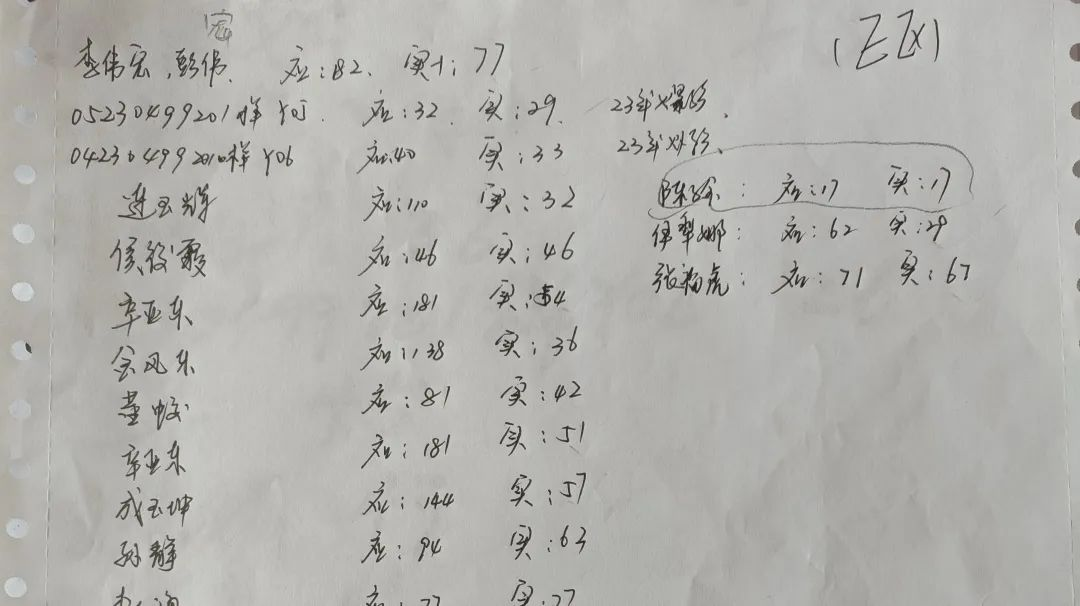 宏
李伟宏,彭伟. 应:82. 实:77
(正区)
05230499201样 应:32. 实:29. 23年
04230499201样Y06 应:40 实:33 23年
连玉辉 应:110 实:32
陈 : 应:17 实:17
侯 霞 应:46 实:46
伊犁娜: 应:62 实:29
辛亚东 应:181 实:4
张 虎: 应:71 实:67
金凤东 应:138 实:36
董 应:81 实:42
辛亚东 应:181 实:51
成玉坤 应:144 实:57
孙静 应:94 实:63
应:77 实:77